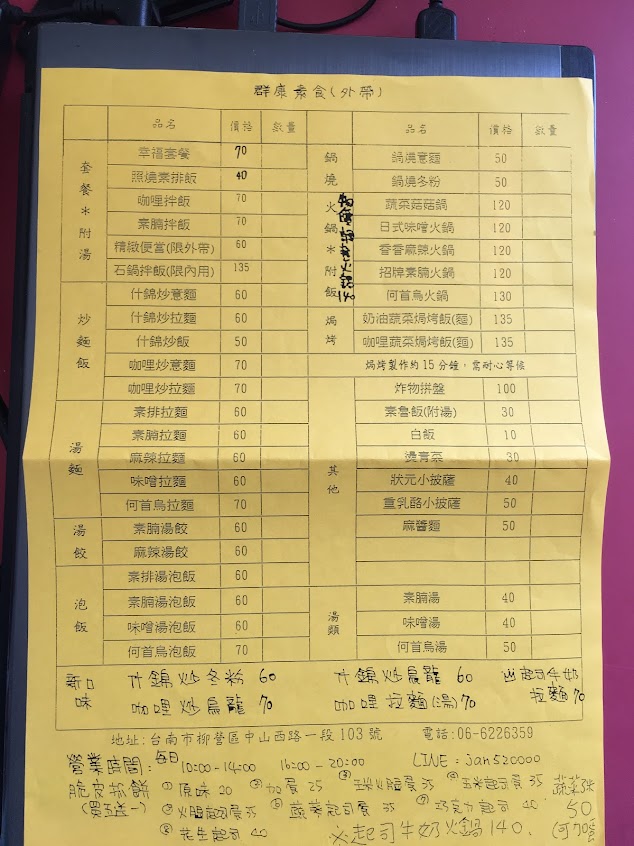 群康素食(外帶)
品名 價格 數量
套餐*附湯
幸福套餐 70
照燒素排飯 40
咖哩拌飯 70
素腩拌飯 70
精緻便當(限外帶) 60
石鍋拌飯(限內用) 135
炒麵飯
什錦炒意麵 60
什錦炒拉麵 60
什錦炒飯 50
咖哩炒意麵 70
咖哩炒拉麵 70
湯麵
素排拉麵 60
素腩拉麵 60
麻辣拉麵 60
味噌拉麵 60
何首烏拉麵 70
湯餃
素腩湯餃 60
麻辣湯餃 60
泡飯
素排湯泡飯 60
素腩湯泡飯 60
味噌湯泡飯 60
何首烏泡飯 70
品名 價格 數量
鍋燒
鍋燒意麵 50
鍋燒冬粉 50
火鍋*附飯
蔬菜菇菇鍋 120
日式味噌火鍋 120
香香麻辣火鍋 120
招牌素腩火鍋 120
何首烏火鍋 130
焗烤
奶油蔬菜焗烤飯(麵) 135
咖哩蔬菜焗烤飯(麵) 135
焗烤製作約15分鐘,需耐心等候
其他
炸物拼盤 100
素魯飯(附湯) 30
白飯 10
燙青菜 30
狀元小披薩 40
重乳酪小披薩 50
麻醬麵 50
湯類
素腩湯 40
味噌湯 40
何首烏湯 50
新口味
什錦炒冬粉 60 什錦炒烏龍 60 起司牛奶
咖哩炒烏龍 70 咖哩拉麵(湯)70 拉麵70
地址:台南市柳營區中山西路一段103號 電話:06-6226359
營業時間:每日10:00-14:00 16:00-20:00 LINE:jan520000
脆皮抓餅 ①原味20 ②加蛋25 ③玉米火腿蛋35 ④玉米起司蛋35
(買五送一) ⑤火腿起司蛋35 ⑥蔬菜起司蛋35 ⑦巧克力起司40
⑧花生起司40 ※起司牛奶火鍋140、
50